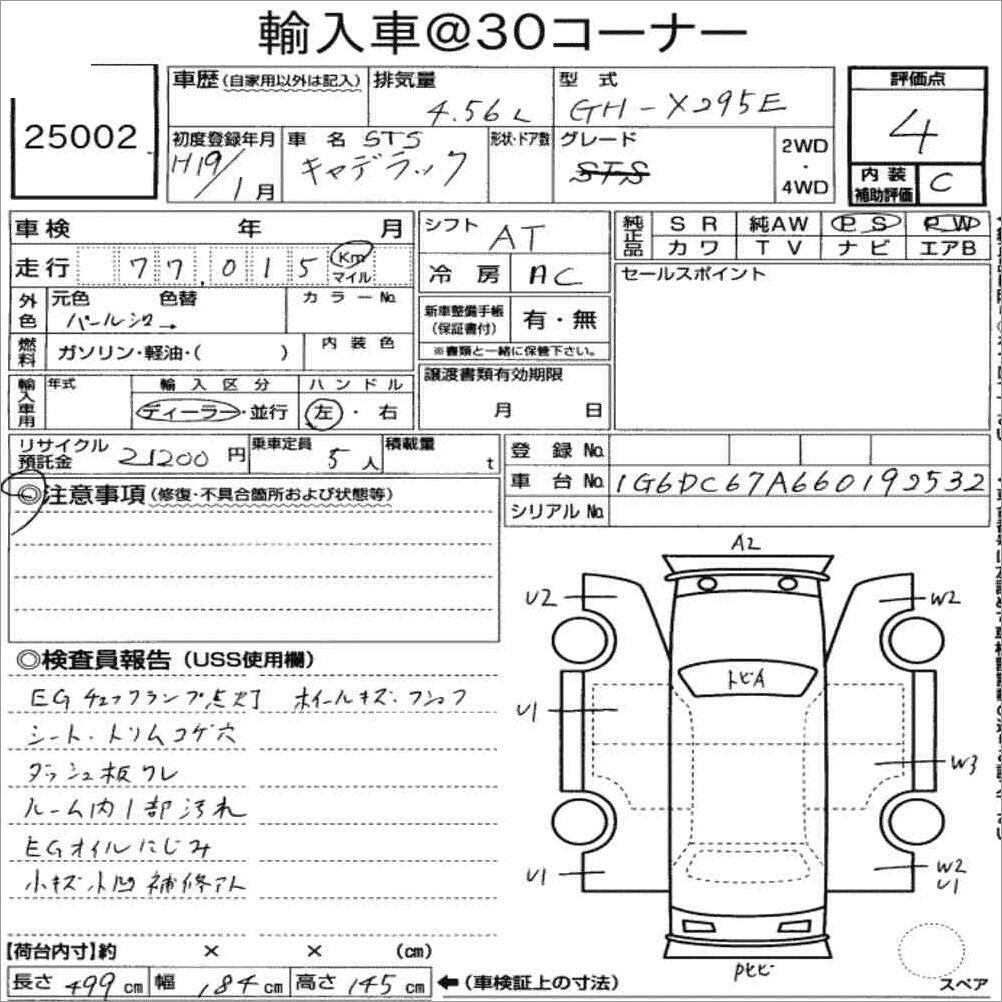 輸入車@30コーナー
25002
車歴(自家用以外は記入) 排気量 4.56L 型式 GH-X295E
初度登録年月 H19/1月 車名 STS キャデラック 形状・ドア数 グレード STS 2WD・4WD
評価点 4
内装補助評価 C
車検 年 月
走行 77,015 Km マイル
外色 元色 パールシロ→ 色替 カラーNo.
燃料 ガソリン・軽油・( ) 内装色
輸入車用 年式 輸入区分 ディーラー・並行 ハンドル 左・右
シフト AT
冷房 AC
新車整備手帳(保証書付) 有・無
※書類と一緒に保管下さい。
譲渡書類有効期限
月 日
純正品 SR 純AW PS PW
カワ TV ナビ エアB
セールスポイント
リサイクル預託金 21200円 乗車定員 5人 積載量 t
登録No.
車台No. 1G6DC67A660192532
シリアルNo.
◎注意事項(修復・不具合箇所および状態等)
◎検査員報告(USS使用欄)
EGチェックランプ点灯 ホイールキズ・
シート・トリムコゲ穴
ダッシュ板ワレ
ルーム内1部汚れ
EGオイルにじみ
小キズ小凹 補修アト
A2
U2 W2
トビA
U1
W3
U1 W2
U1
Pヒビ
スペア
【荷台内寸】約 × × (cm)
長さ 499cm 幅 184cm 高さ 145cm ←(車検証上の寸法)